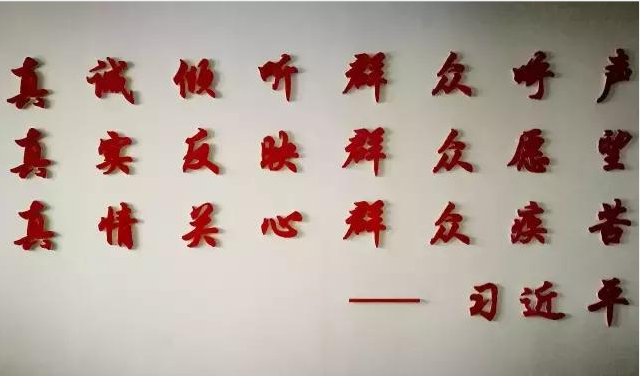 真诚倾听群众呼声
真实反映群众愿望
真情关心群众疾苦
——习近平